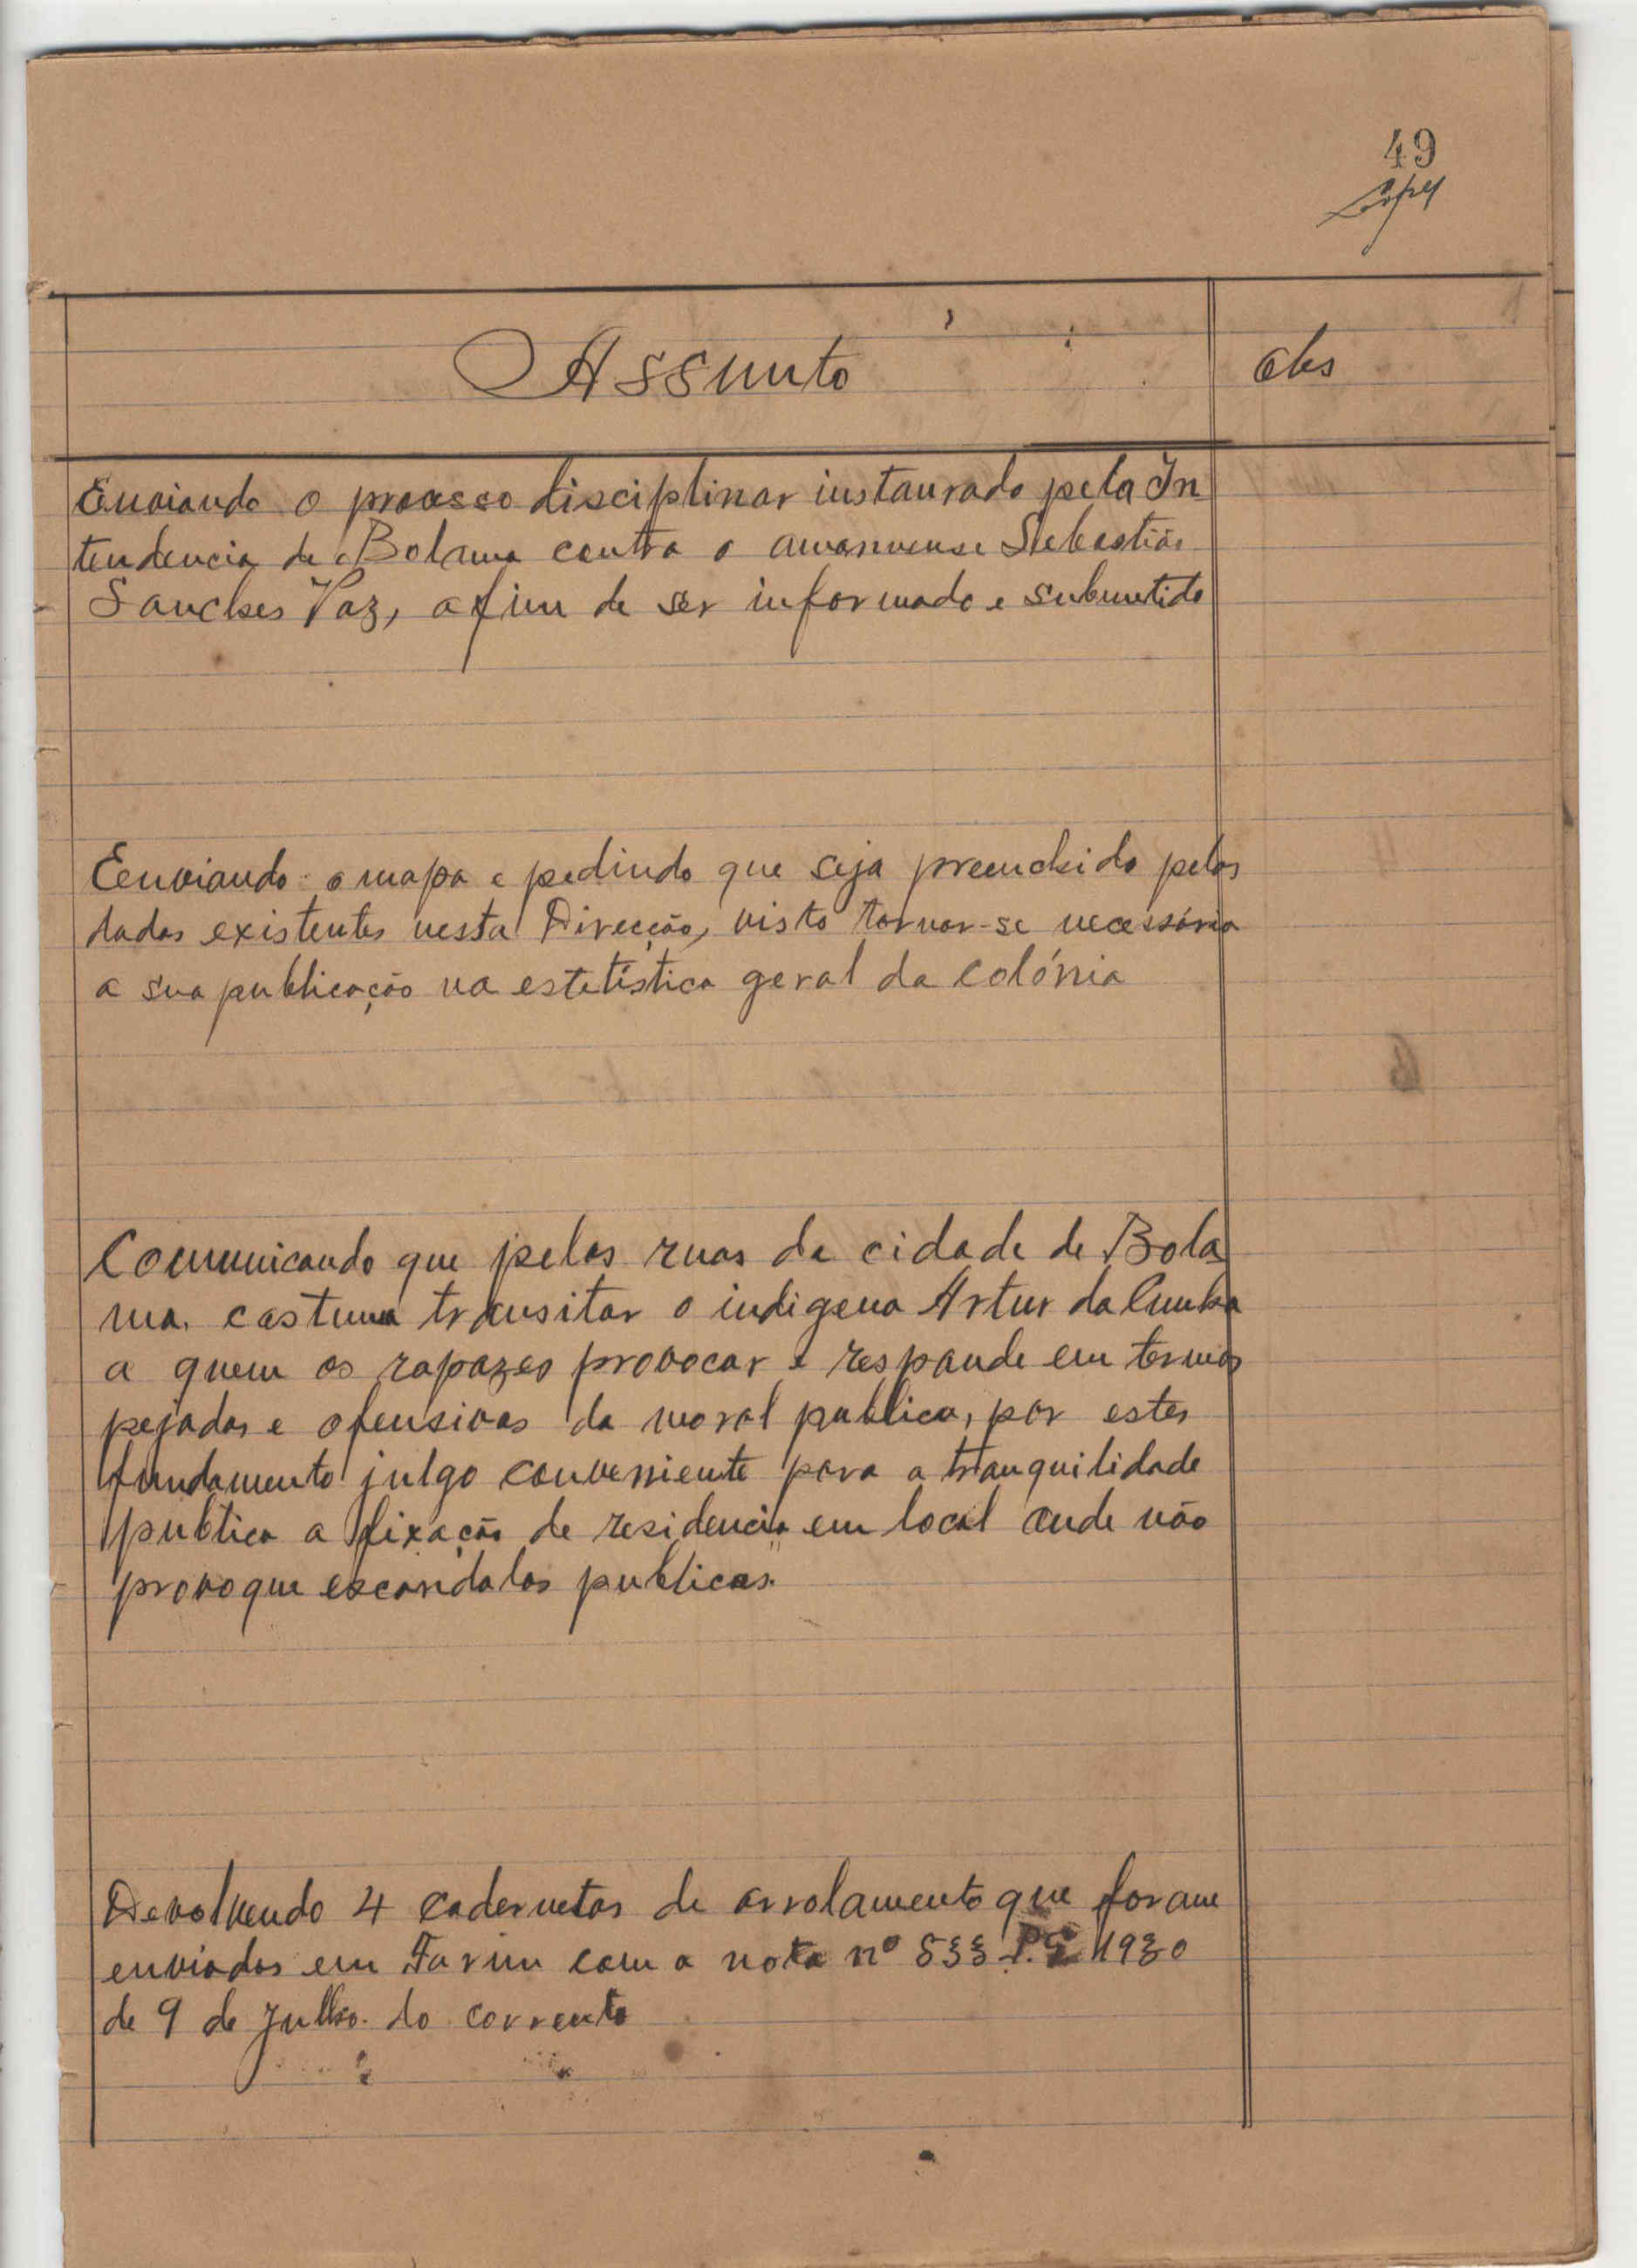 49
Assunto
obs
Enviando o processo disciplinar instaurado pela In
tendencia de Bolama contra o amanuense Sebastião
Sanches Vaz, afim de ser informado e submetido
Eenviando o mapa e pedindo que seja preenchido pelos
dados existentes nesta Direcção, visto tornar-se necessária
a sua publicação na estetística geral da colónia
Comunicando que pelas ruas da cidade de Bola
ma. costuma transitar o indigena Artur da Cunha
a quem os rapazes provocar e responde em termos
pejados e ofensivos da moral publica, por estes
fundamento julgo conveniente para a tranquilidade
publica a fixação de residencia em local onde não
provoque escandalos publicos.
Devolvendo 4 cadernetas de arrolamento que foram
enviadas em Farim com a nota nº 533 1930
de 9 de Julho. do corrente